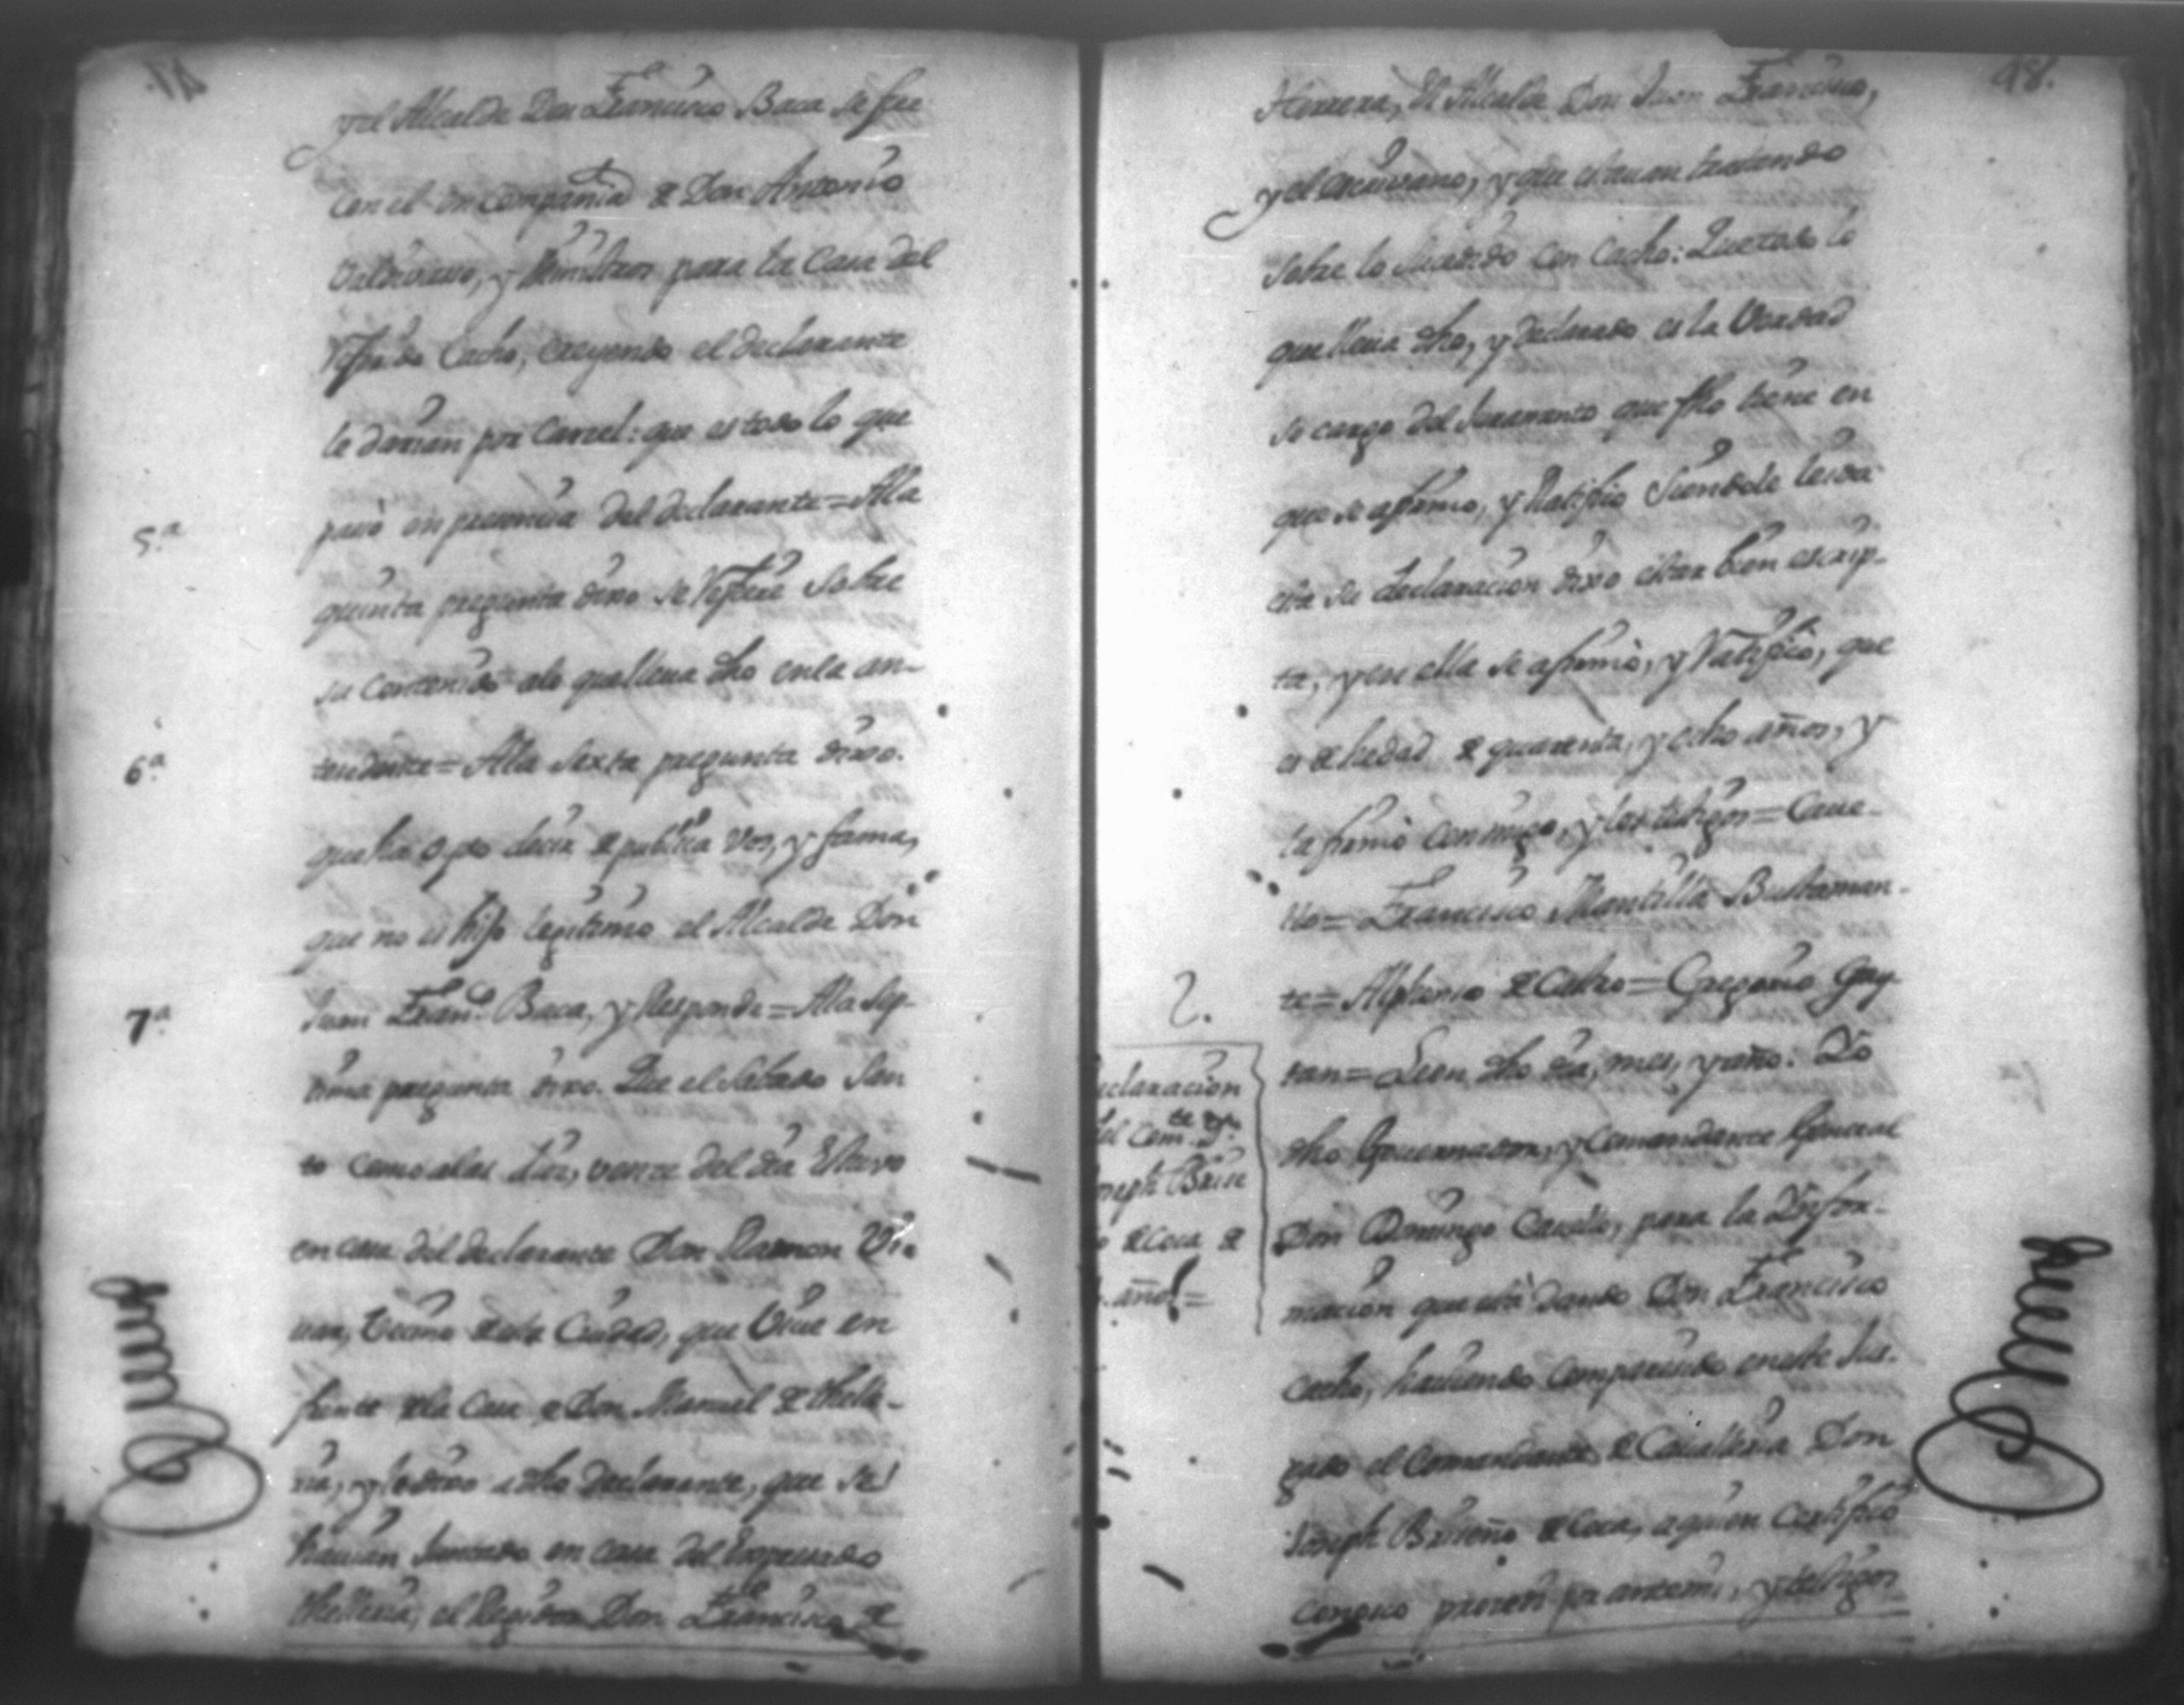 y el Alcalde Don Francisco Baca se fue
con el en compañia de Don Antonio
Valdivieso, y Ministros para la Casa del
Referido Cacho, creyendo el declarante
le darian por Carcel: que es todo lo que
5.a
pasò en presencia del declarante = Ala
quinta pregunta dixo se Refiere sobre
su Contenido alo que lleua dho en la an-
6.a
tecedente = Ala Sexta pregunta dixo.
que ha oydo decir de publica vos, y fama,
que no es hijo legitimo el Alcalde Don
7.a
Juan Fran.co Baca, y Responde = Ala Sep-
tima pregunta dixo. Que el Sabado San
to como alas diez, v onze del dia Estuvo
en casa del declarante Don Ramon
vecino de esta Ciudad, que Viue en
frente de la Casa de Don Manuel de thelle-
ria, y le dixo a dho declarante, que se
hauian Juntado en casa del Expresado
thelleria, el Regidor Don Francisco de
48.
Herrera, el Alcalde Don Juan Francisco,
y el escriuano, y que estauan tratando
sobre lo sucedido con Cacho: Que todo lo
que lleua dho, y declarado es la Verdad
so cargo del Juramento que fho tiene en
que se afirmo, y Ratifico Siendole leida
esta su declaracion dixo estar bien escrip-
ta, y en ella se afirmò, y Ratificò, que
es de hedad de quarenta, y ocho años, y
la firmò conmigo, y los testigos = Cave-
llo = Francisco Mantilla Bustaman-
te = Alphonso de Castro = Gregorio Gay-
tan = Leon dho dia, mes, y año. Yo
dho Gouernador, y Comandante General
Don Domingo Cavello, para la Ynfor-
macion que està dando Don Francisco
Cacho, hauiendo comparecido en este Jus-
gado el Comandante de Caualleria Don
Joseph Briseño de Coca, a quien Certifico
conosco presente por antemi, y testigos
2.
eclaracion
del Com.te Dn
oseph Brise
o de Coca de
años =